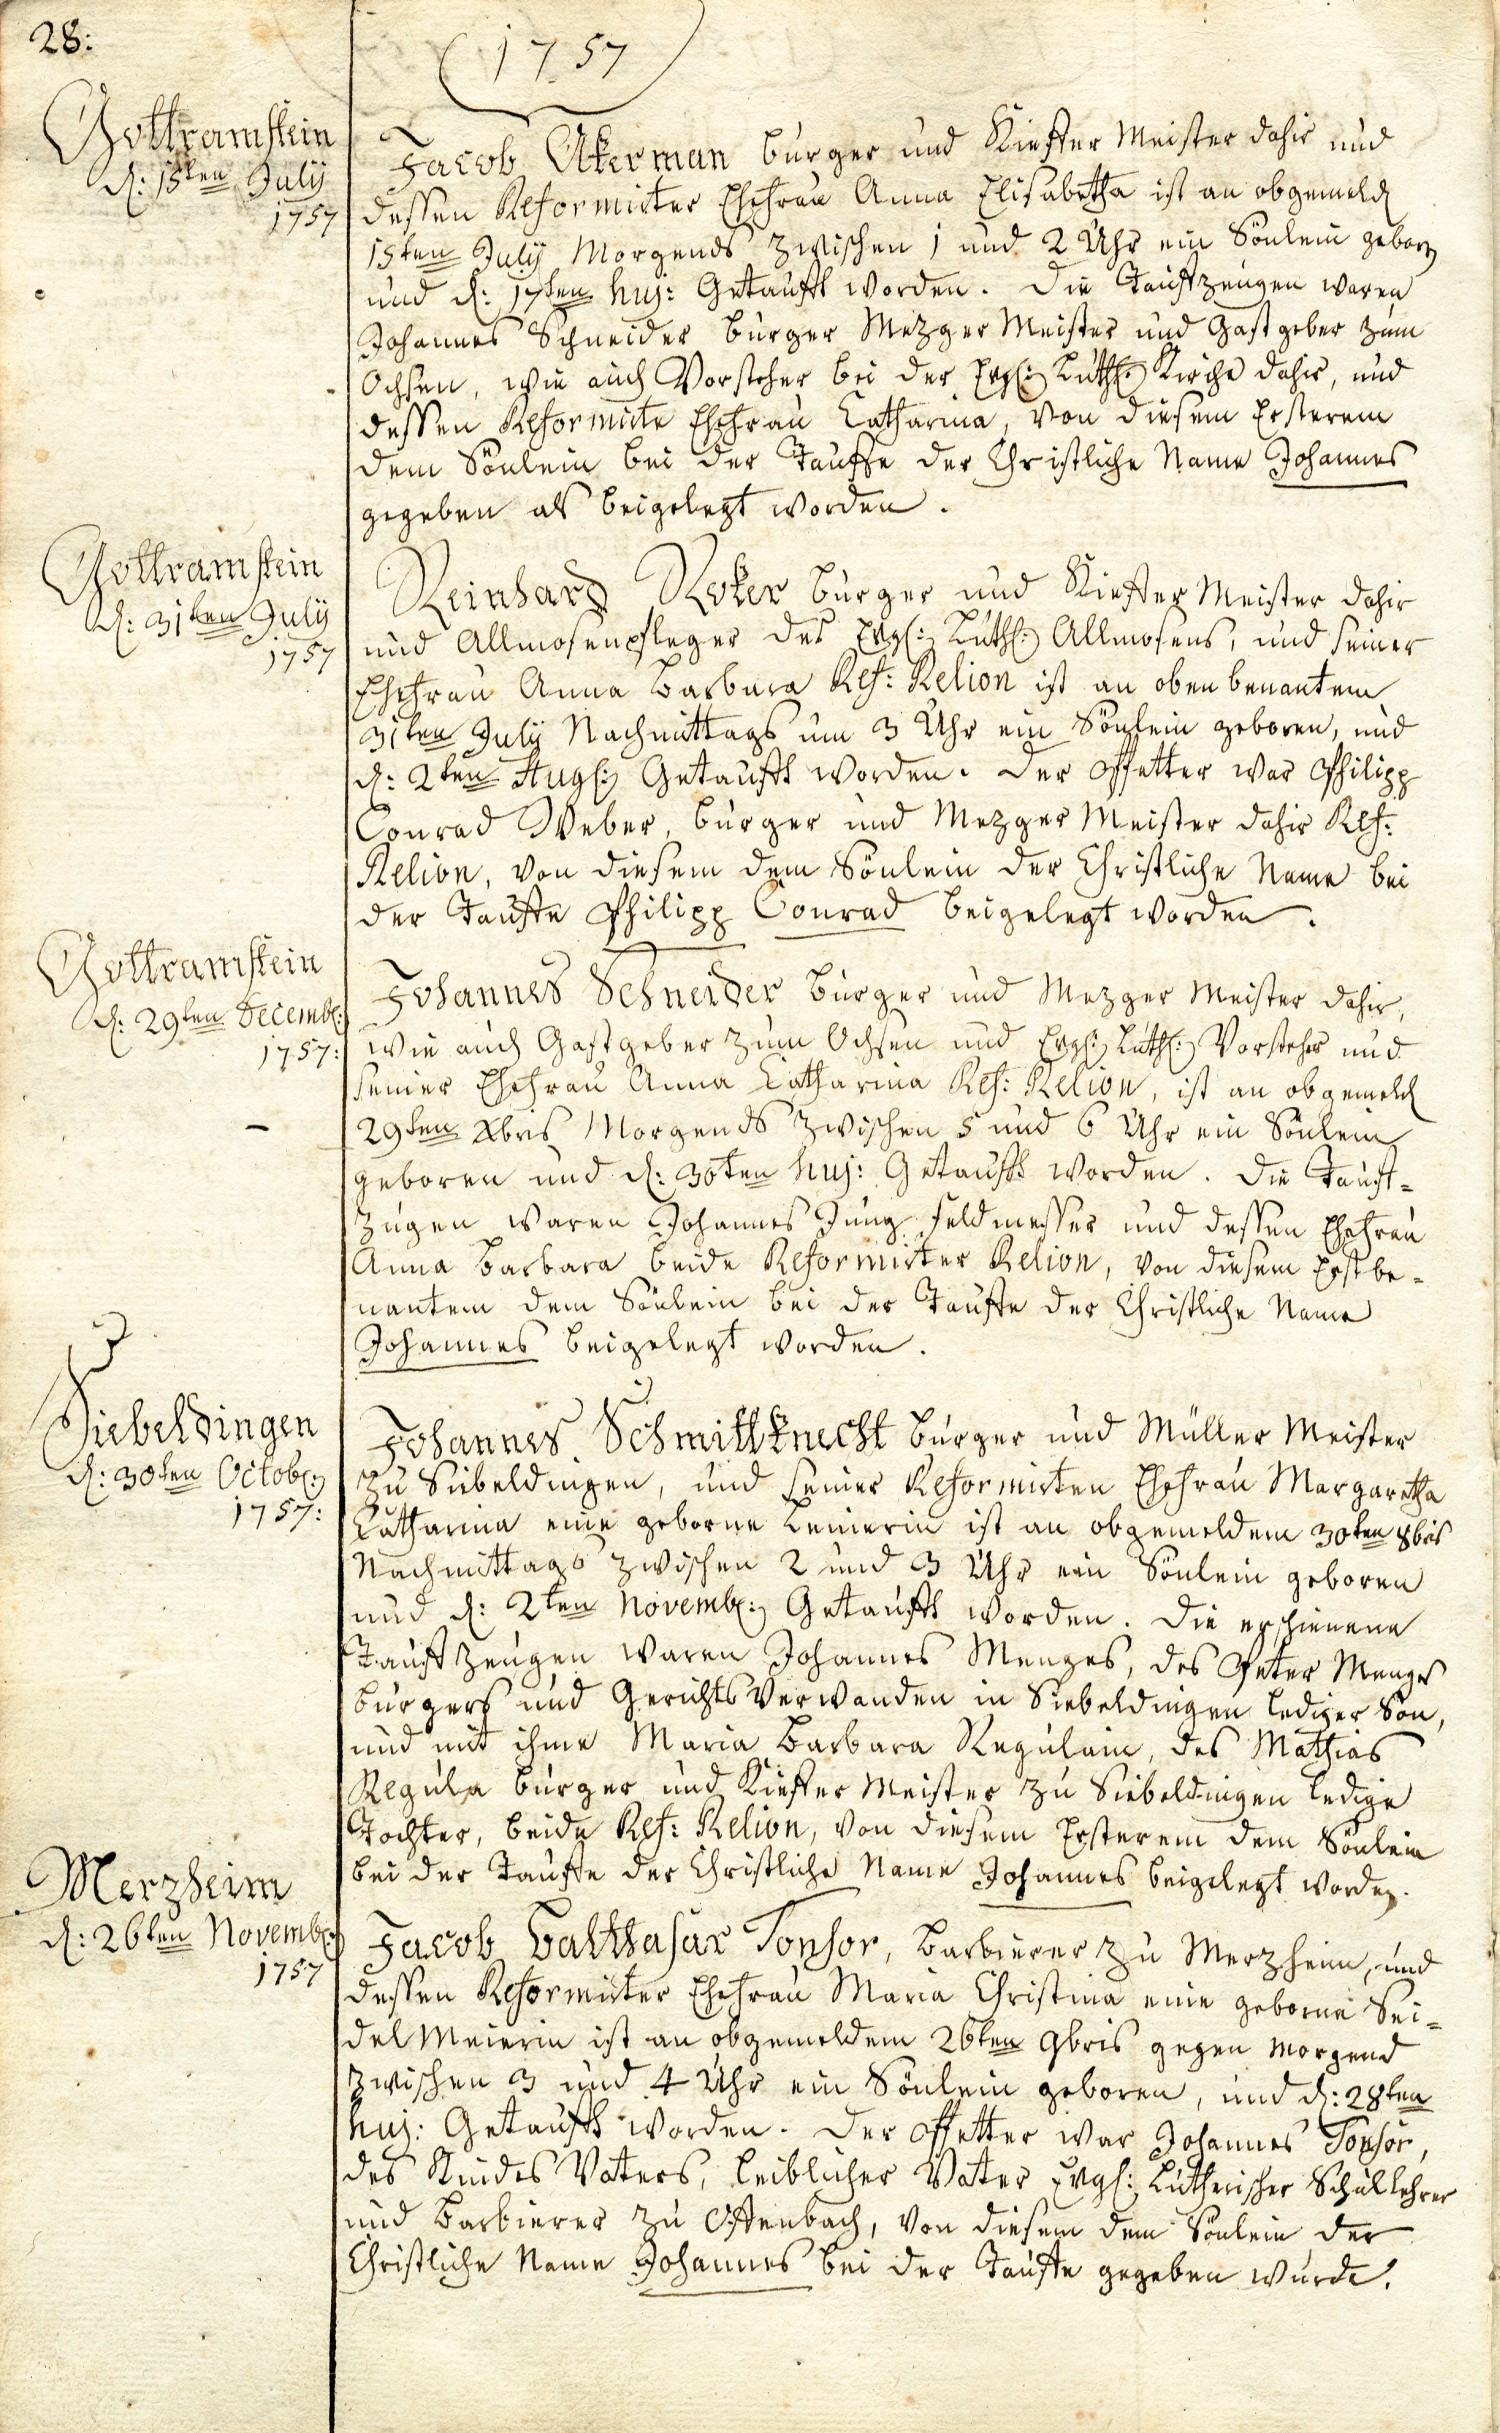 28:
(1757)
Gottramstein
d: 15ten July
1757
Jacob Akerman burger und Kieffer Meister dahir und
dessen Reformirter Ehefrau Anna Elisabetha ist an obgemeld
15ten July Morgends zwischen 1 und 2 Uhr ein Sönlein geborn
und d: 17ten huj: Getaufft worden. Die Tauffzeugen waren
Johannes Schneider burger Mezger Meister und Gastgeber zum
Ochsen, wie auch Vorsteher bei der Evgl: Luth: Kirche dahir, und
dessen Reformirte Ehefrau Catharina, von diesem Ersterem
dem Sönlein bei der Tauffe der Christliche Name Johannes
gegeben als beigelegt worden.
Gottramstein
d: 31ten July
1757
Reinhard Roker burger und Kieffer Meister dahir
und Allmosenpfleger des Evgl: Luth: Allmosens, und seiner
Ehefrau Anna Barbara Ref: Relion ist an oben benantem
31ten July Nachmittags um 3 Uhr ein Sönlein geboren, und
d: 2ten Augl: Getaufft worden. Der Pfetter war Philipp
Conrad Weber, burger und Mezger Meister dahir Ref:
Relion, von diesem dem Sönlein der Christliche Name bei
der Tauffe Philipp Conrad beigelegt worden.
Gottramstein
d: 29ten Decembl:
1757:
Johannes Schneider burger und Mezger Meister dahir,
wie auch Gastgeber zum Ochsen und Evgl: Luth: Vorsteher und
seiner Ehefrau Anna Catharina Ref: Relion, ist an obgemeld
29ten Xbris Morgends zwischen 5 und 6 Uhr ein Sönlein
geboren und d: 30ten huj: Getaufft worden. Die Tauff-
zügen waren Johannes Jung feldmesser und dessen Ehefrau
Anna Barbara beide Reformirter Relion, von diesem Erstbe-
nantem dem Sönlein bei der Tauffe der Christliche Name
Johannes beigelegt worden.
Siebeldingen
d: 30ten Octobl:
1757:
Johannes Schmittknecht burger und Müller Meister
zu Siebeldingen, und seiner Reformirten Ehefrau Margaretha
Catharina eine geborne Leinerin ist an obgemeldem 30ten 8bris
Nachmittags zwischen 2 und 3 Uhr ein Sönlein geboren
und d: 2ten Novembl: Getaufft worden. Die erschienene
Tauffzeugen waren Johannes Menges, des Peter Menges
burgers und Gerichts Verwanden in Siebeldingen lediger Son,
und mit ihme Maria Barbara Regulain, des Mathias
Regula burger und Kieffer Meister zu Siebeldingen ledige
Tochter, beide Ref: Relion, von diesem Ersterem dem Sönlein
bei der Tauffe der Christliche Name Johannes beigelegt worden.
Merzheim
d: 26ten Novembl:
1757
Jacob Balthasar Tonsor, Barbierer zu Merzheim, und
dessen Reformirter Ehefrau Maria Christina eine geborne Sei-
del Meierin ist an obgemeldem 26ten 9bris gegen Morgend
zwischen 3 und 4 Uhr ein Sönlein geboren, und d: 28ten
huj: Getaufft worden. Der Pfetter war Johannes Tonsor,
des Kindes Vaters, leiblicher Vater Evgl: Lutherischer Schullehrer
und Barbierer zu Offenbach, von diesem dem Sönlein der
Christliche Name Johannes bei der Tauffe gegeben wurde.